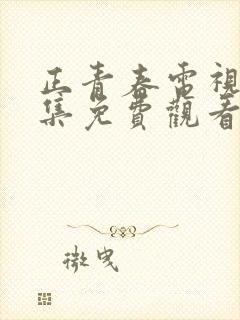 正青春電視
集免費觀看
微曳